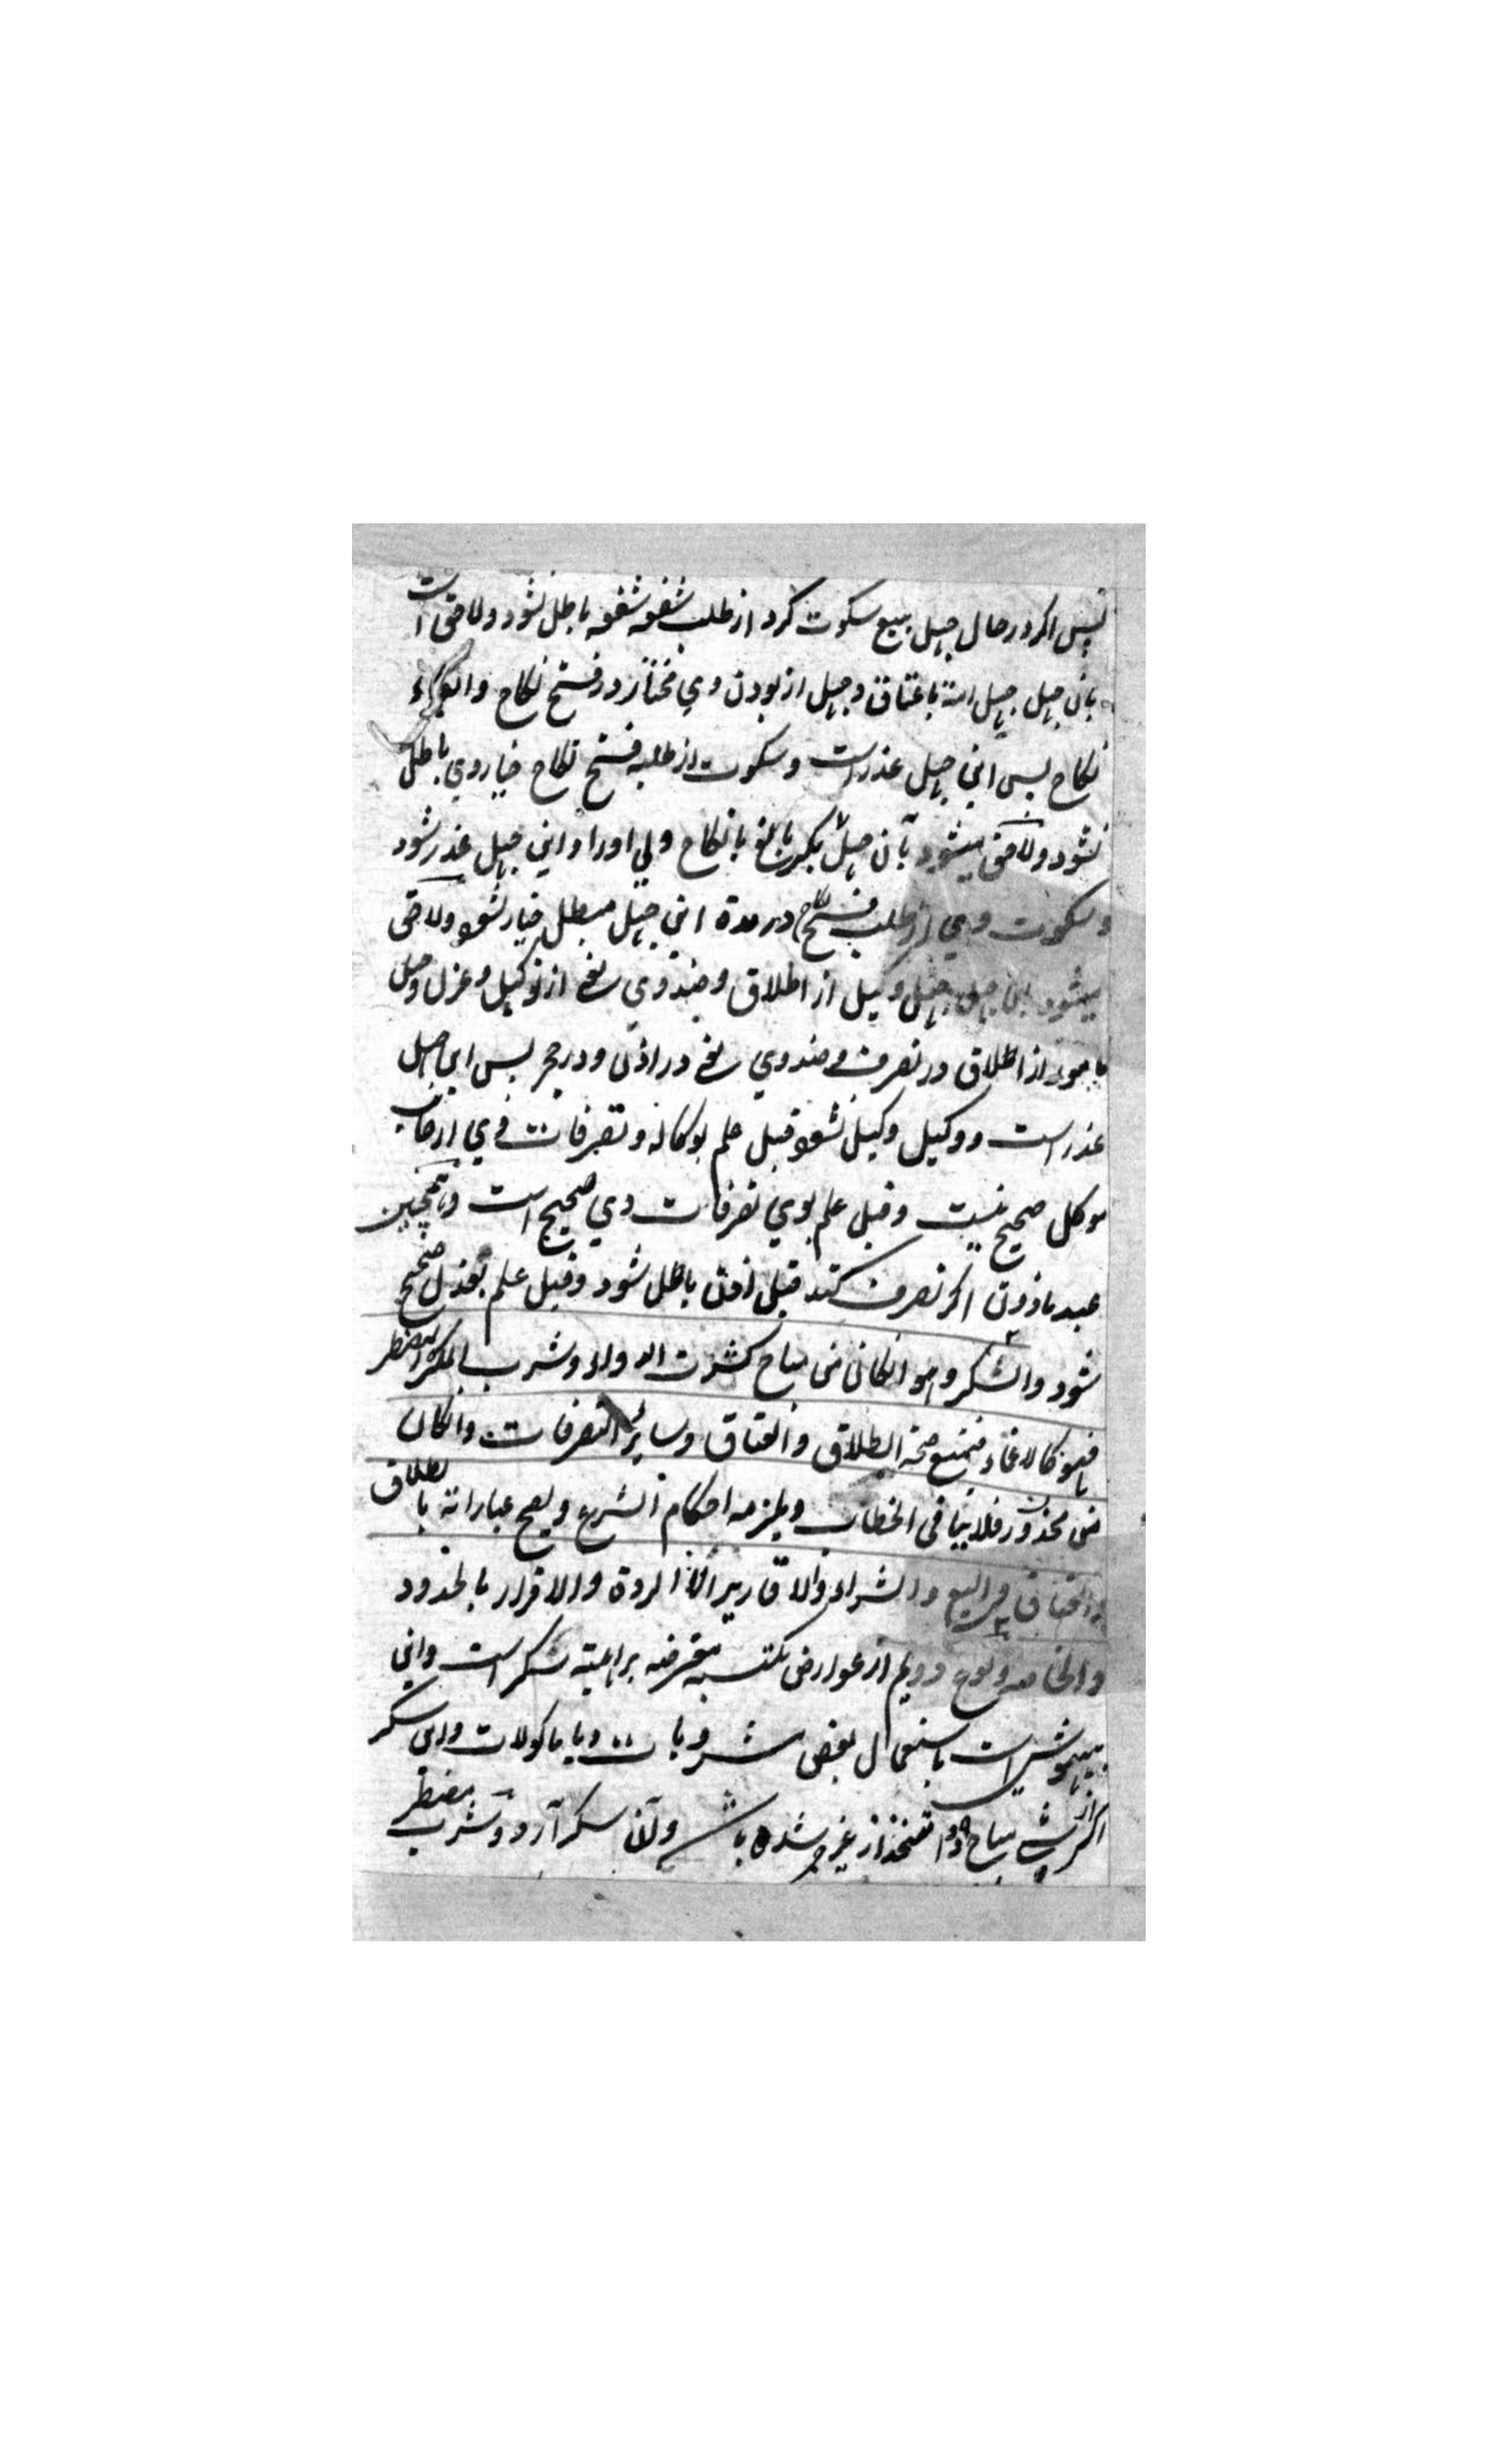 پس اگر در حال جهل ببیع سکوت کرد از طلب شفعه شفعه باطل نشود و لاحق است
بان جهل جهل امة باعتاق و جهل از بودن وی مختار در فسخ نکاح و
نکاح پس این جهل عذر است و سکوت از طلب فسخ نکاح خیار وی باطل
نشود و لاحق میشود بآن جهل بکر بالغ بانکاح ولی او را و این جهل عذر شود
و سکوت وی از طلب فسخ نکاح در مدة این جهل مبطل خیار نشود و لاحق
میشود باین جهل جهل وکیل از اطلاق و ضد وی یعنی از توکیل و عزل و جهل
از اطلاق در تصرف و ضد وی یعنی در اذن و در حجر پس این جهل
عذر است و وکیل وکیل نشود قبل علم بوکاله و تصرفات وی از جانب
موکل صحیح نیست و قبل علم بوی تصرفات وی صحیح است و همچنین
عبد ماذون اگر تصرف کند قبل اذن باطل شود و قبل علم بعزل صحیح
شود والسکر وهو ان کان من مباح کشرب الدواء وشرب المکره والمضطر
فهو کالاغماء فیمنع صحة الطلاق والعتاق وسایر التصرفات وان کان
من محذور فلا ینافی الخطاب ویلزمه احکام الشرع ویصح عباراته بالطلاق
والعتاق والبیع والشراء والاقاریر الا الردة والاقرار بالحدود
الخالصة ونوع دویم از عوارض مکتسبه معترضه بر اهلیته سکر است و این
بیهوشی است باستعمال بعض مشروبات و یا ماکولات و این سکر
اگر از شی مباح متخذ از غیر شده باشد و آن سکر آرد و شرب مضطر